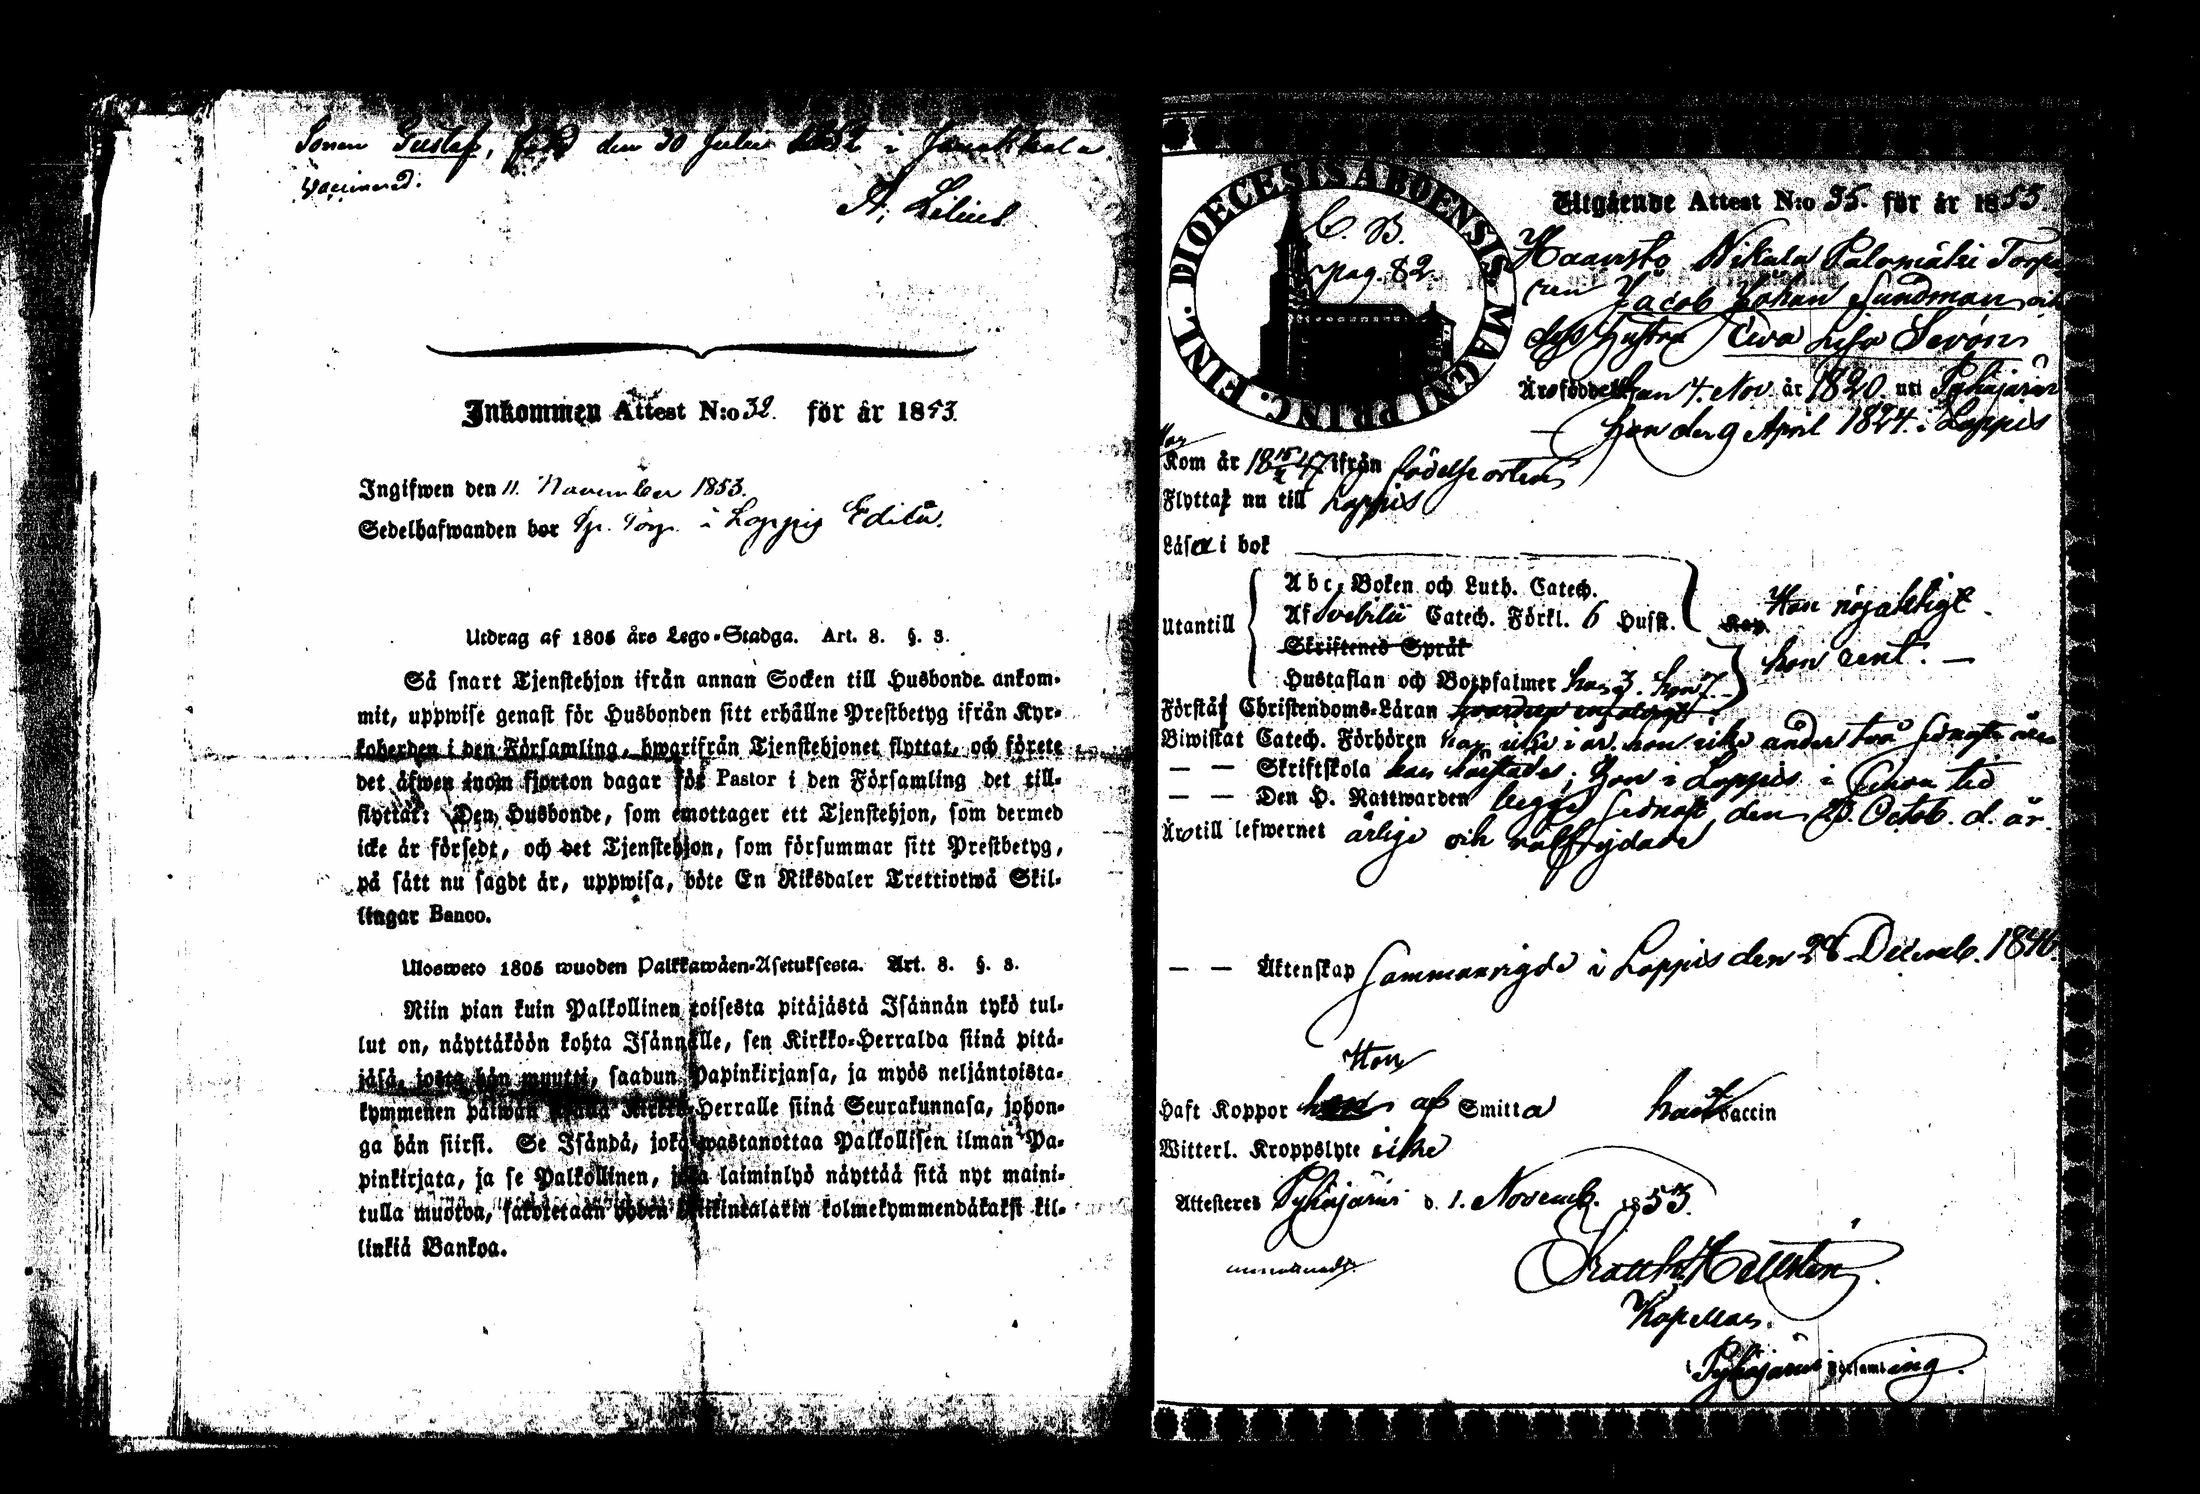 Sonen Gustaf, född den 30 Julii 1852 i Janakkala.
Vaccinerad.
A. Lilius
Inkommen Attest N:o 32. för år 1853.
Ingifwen den 11. November 1853.
Sedelhafwanden bor i Loppis
Utdrag af 1805 års Lego-Stadga. Art. 8. §. 3.
Så snart Tjenstehjon ifrån annan Socken till Husbonde ankom-
mit, uppwise genast för Husbonden sitt erhållne Prestbetyg ifrån Kyr-
koherden i den Församling, hwarifrån Tjenstehjonet flyttat, och förete
det äfwen inom fjorton dagar för Pastor i den Församling det till-
flyttat: Den Husbonde, som emottager ett Tjenstehjon, som dermed
icke är försedt, och det Tjenstehjon, som försummar sitt Prestbetyg,
på sätt nu sagdt är, uppwisa, böte En Riksdaler Trettiotwå Skil-
lingar Banco.
Ulosweto 1805 wuoden Palkkawäen-Asetuksesta. Art. 8. §. 3.
Niin pian kuin Palkollinen toisesta pitäjästä Isännän tykö tul-
lut on, näyttäköön kohta Isännälle, sen Kirkko-Herralda siinä pitä-
jäsä, josta hän muutti, saadun Papinkirjansa, ja myös neljäntoista-
kymmenen päiwän Kirkko-Herralle siinä Seurakunnasa, johon-
ga hän siirsi. Se Isändä, joka wastanottaa Palkollisen ilman Pa-
pinkirjata, ja se Palkollinen, joka laiminlyö näyttää sitä nyt maini-
tulla muoton, sakotetaan yhden Riikintalarin kolmekymmendäkaksi kil-
linkiä Bankoa.
DIOECESIS ABOENSIS MAGNI PRINC. FINL.
C. B.
pag. 82.
Utgående Attest N:o 35. för år 1853
Haavisto Nikula Palomäki Torpa
ren Jacob Johan Sundman och
dess hustru Ewa Lisa Serón
Äro födde han 4. Nov. år 1820. uti Pyhäjärvi
hon den 9 April 1824. i Loppis
Hon
Kom år 18 15/2 47 ifrån födelse orten
Flytta nu till Loppis
Läsa i bok
Utantill
Abc-Boken och Luth. Catech.
Af Svebilii Catech. Förkl. 6 Husst.
Skriftenes Språk
Hustaflan och Botpsalmer han 3. hon 7.
Han nöjaktigt
hon rent. —
Förstå Christendoms-Läran
Biwistat Catech. Förhören han icke i år. hon icke under två sednaste åren
— — Skriftskola han härstädes; hon i Loppis i sinom tid
— — Den H. Nattwarden begge sednast den 23. Octob. d. år.
Äro till lefwernet ärlige och välfrejdade
— — Äktenskap sammanvigde i Loppis den 28 Decemb. 1846.
Hon
Haft Koppor af Smitta han vaccin
Witterl. Kroppslyte icke
Attesteras Pyhäjärvi d. 1. Novemb. 1853.
Hellstén
Kapellan
i Pyhäjärvi Församling.